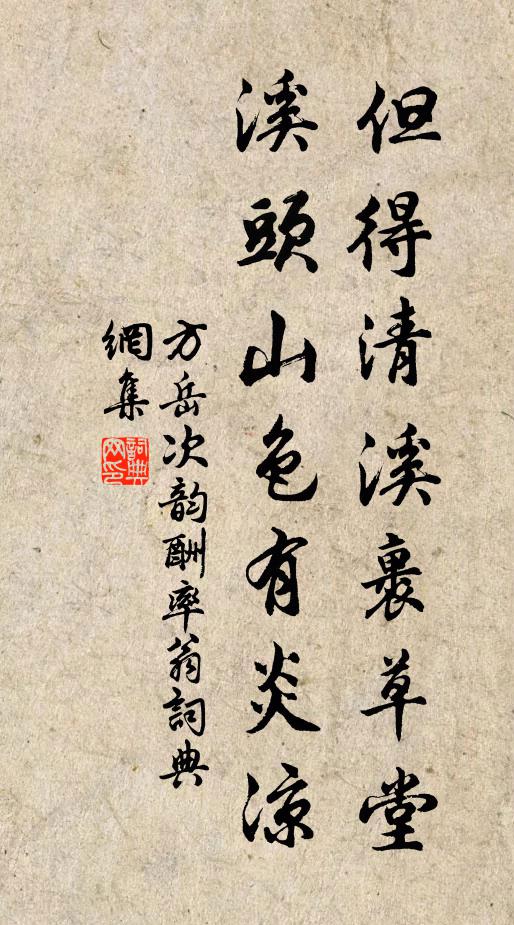 但得清溪裹草堂
溪頭山色有炎涼
方岳次韵酬率翁詞典
網集
詞典網印